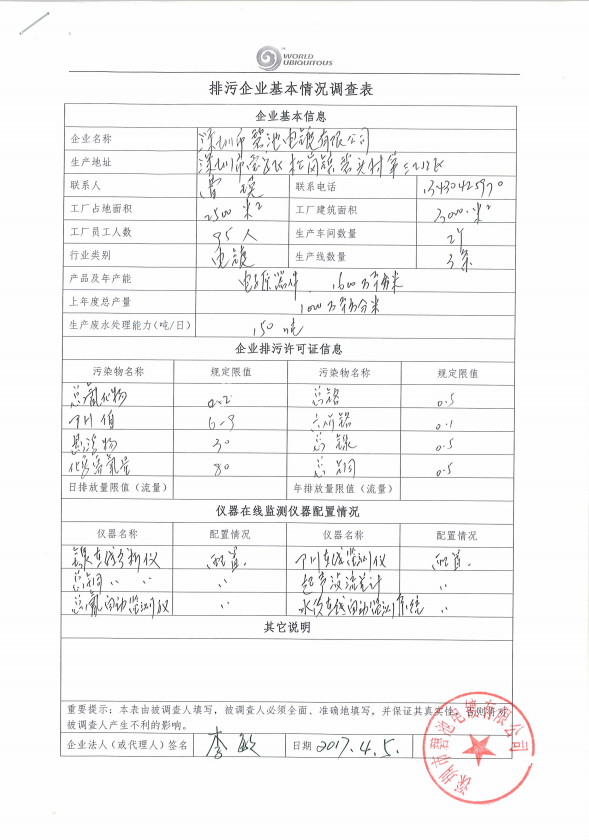 WORLD
UBIQUITOUS
排污企业基本情况调查表
企业基本信息
企业名称 深圳市碧池电镀有限公司
生产地址 深圳市宝安区松岗镇碧头村第三工业区
联系人 联系电话
工厂占地面积 2500 米² 工厂建筑面积 3000 米²
工厂员工人数 95 人 生产车间数量 2个
行业类别 电镀 生产线数量 3条
产品及年产能 电子原器件 1600万平方米
上年度总产量 1000万平方分米
生产废水处理能力(吨/日) 150 吨
企业排污许可证信息
污染物名称 规定限值 污染物名称 规定限值
总氰化物 0.2 总铬 0.5
PH值 6-9 六价铬 0.1
悬浮物 30 总镍 0.5
化学需氧量 80 总铜 0.5
日排放量限值(流量) 年排放量限值(流量)
仪器在线监测仪器配置情况
仪器名称 配置情况 仪器名称 配置情况
镍在线分析仪 配置. PH在线监测仪 配置.
总铜 〃 〃 〃 超声波流量计 〃
总氰自动监测仪 〃 水质在线自动监测系统 〃
其它说明
重要提示:本表由被调查人填写,被调查人必须全面、准确地填写,并保证其真实性,否则将对
被调查人产生不利的影响。
企业法人(或代理人)签名 李敏 日期 2017.4.5.
深圳市碧池电镀有限公司